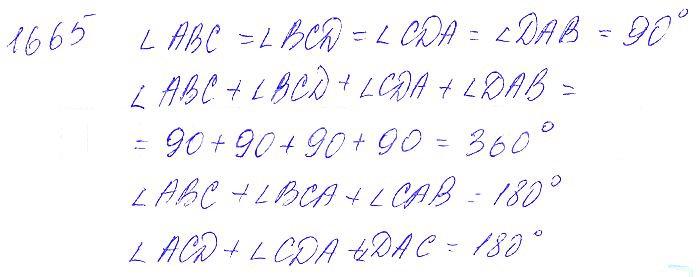 1665 ∠ABC = ∠BCD = ∠CDA = ∠DAB = 90°
∠ABC + ∠BCD + ∠CDA + ∠DAB =
= 90 + 90 + 90 + 90 = 360°
∠ABC + ∠BCA + ∠CAB = 180°
∠ACD + ∠CDA + ∠DAC = 180°